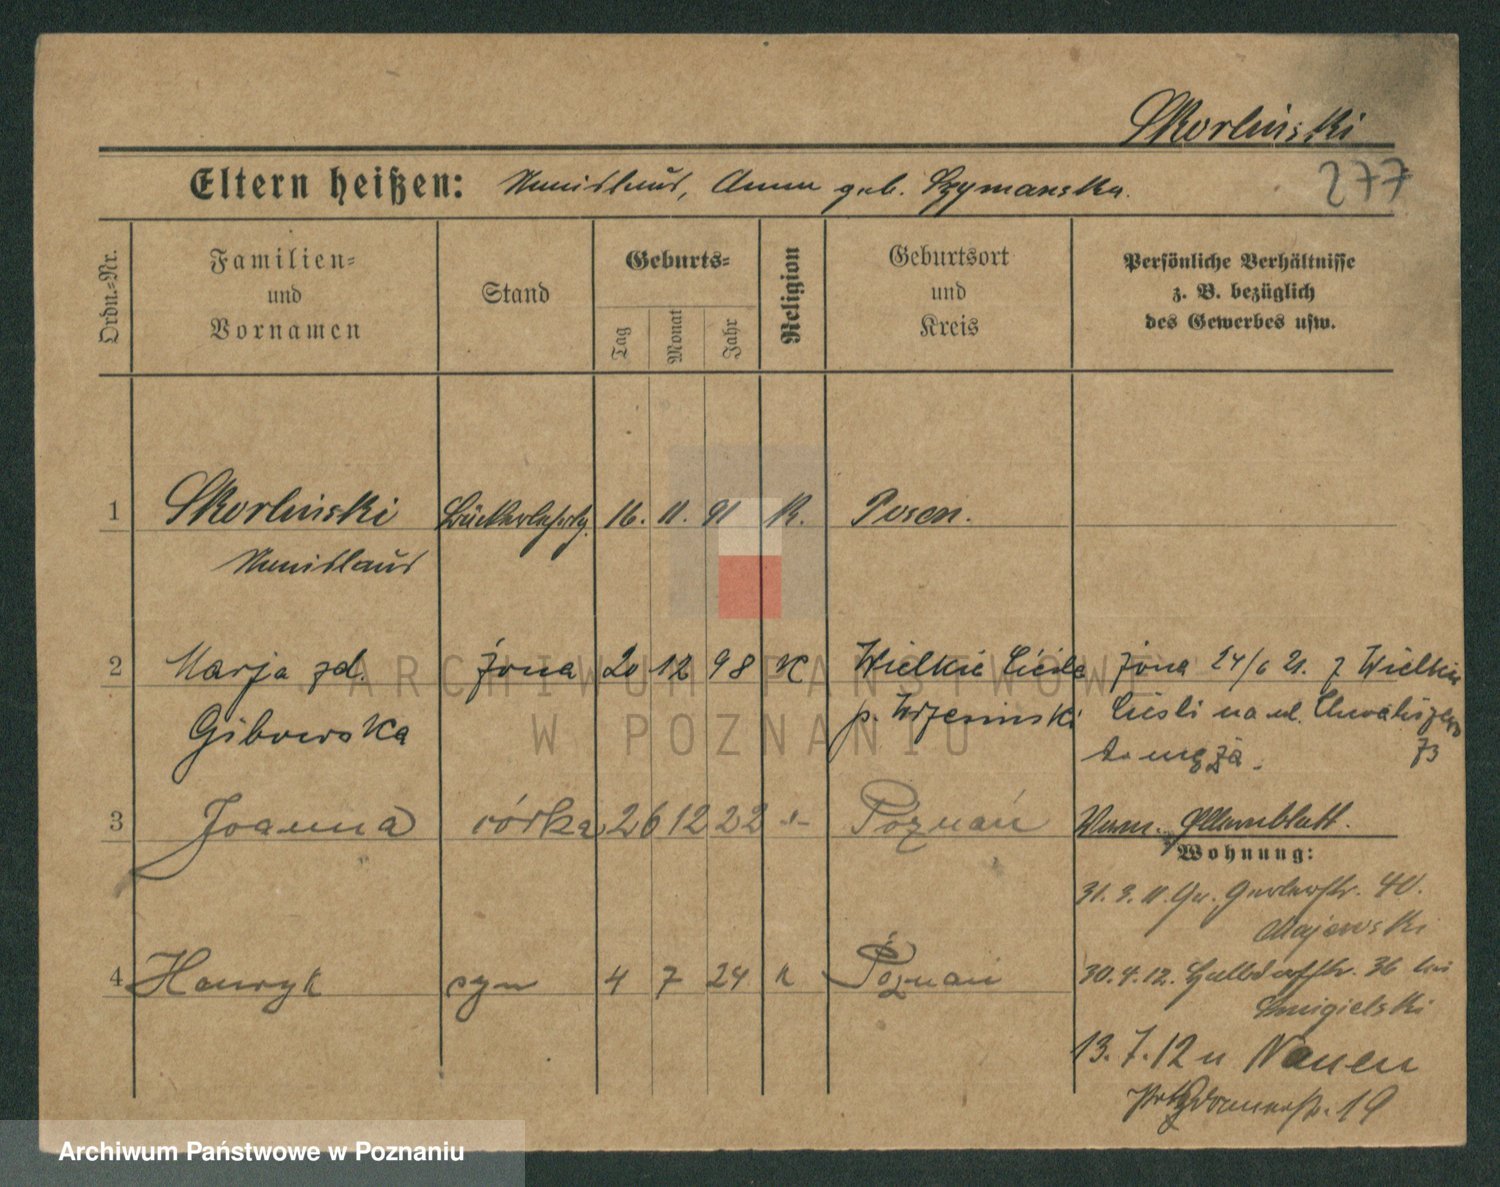 Skorliński
277
Eltern heißen: Stanislaus, Anna geb. Szymanska.
Ordn.=Nr.
Familien=
und
Vornamen
Stand
Geburts=
Tag
Monat
Jahr
Religion
Geburtsort
und
Kreis
Persönliche Verhältnisse
z. B. bezüglich
des Gewerbes usw.
1 Skorliński 16. 11. 91 K. Posen.
Stanislaus
2 Marja zd. żona 20 12 98 K Wielkie żona 24/6 21. z Wielkie
Gibowska p. Wrzesinski na ul. Chwaliszewo
do męża. 73
3 Joanna córka 26 12 22 -"- Poznań
Wohnung:
31. 3. 11. Gr. Gerberstr. 40.
Majewski
4 Henryk syn 4 7 24 K Poznań
30. 4. 12. 36 bei
Smigielski
13. 7. 12 n Nauen
19
ARCHIWUM PAŃSTWOWE
W POZNANIU
Archiwum Państwowe w Poznaniu